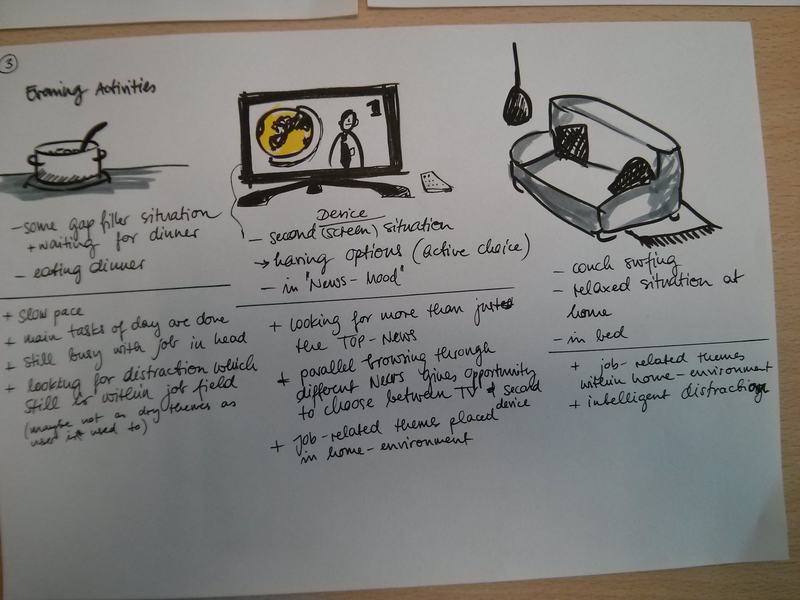 3
Evening Activities
- some gap filler situation
+ waiting for dinner
- eating dinner
+ slow pace
+ main tasks of day are done
+ still busy with job in head
+ looking for distraction which
still is within job field
(maybe not as dry themes as
user is used to)
1
Device
- second (screen) situation
→ having options (active choice)
- in "News-Mood"
+ looking for more than just
the TOP-News
+ parallel browsing through
different News gives opportunity
to choose between TV & second
device
+ job-related themes placed
in home-environment
- couch surfing
- relaxed situation at
home
- in bed
+ job-related themes
within home-environment
+ intelligent distraction